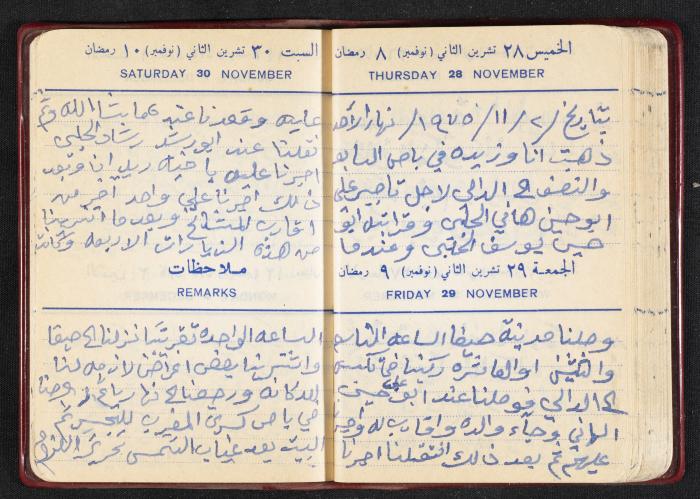 الخميس ٢٨ تشرين الثاني (نوفمبر) ٨ رمضان
THURSDAY 28 NOVEMBER
بتاريخ /٢/١١/١٩٧٥/ نهار الأحد
ذهبت انا وزيده في باص السابعه
والنصف الى الدالي لاجل
ابو حسين هاني الحلبي وقرابته ابو
حسين يوسف الحلبي وعندما
الجمعة ٢٩ تشرين الثاني (نوفمبر) ٩ رمضان
FRIDAY 29 NOVEMBER
وصلنا مدينة حيفا الساعه التاسعه
والثلث او العاشره ركبنا في تكسي
الى الدالي فوصلنا عند ابو علي حسين
الهاني وجاء والده واقارب له واجرنا
عليهم ثم بعد ذالك انتقلنا اجرنا
السبت ٣٠ تشرين الثاني (نوفمبر) ١٠ رمضان
SATURDAY 30 NOVEMBER
عليه وقعدنا عنده ما يشا الله ثم
نقلنا عند ابو رشد رشاد الحلبي
اجرنا عليه
ذالك اجرنا علي واحد اخر من
اقارب وبعد ما انتهينا
من هذه الزيارات الاربعه وكانت
ملاحظات
REMARKS
الساعه الواحده تقريبًا نزلنا الى حيفا
واشترينا بعض اغراض لازمه لنا
للدكانه ورجعنا
في باص كسرى المغرب ثم
البيت بعد غياب الشمس